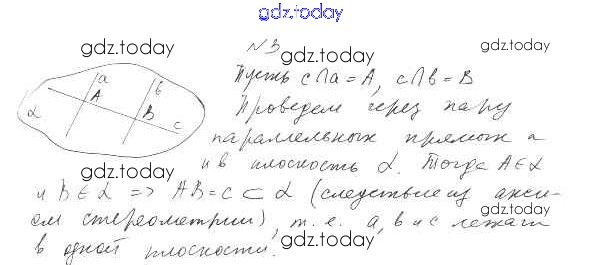 gdz.today
gdz.today
N 3
gdz.today
gdz.today
a
b
A
B
c
α
Пусть c∩a = A, c∩b = B
Проведем через пару
параллельных прямых a
и в плоскость α. Тогда A∈α
gdz.today
и B∈α => AB=c ⊂ α (следствие из акси-
ом стереометрии), т.е. a, b и c лежат
gdz.today
в одной плоскости.
gdz.today